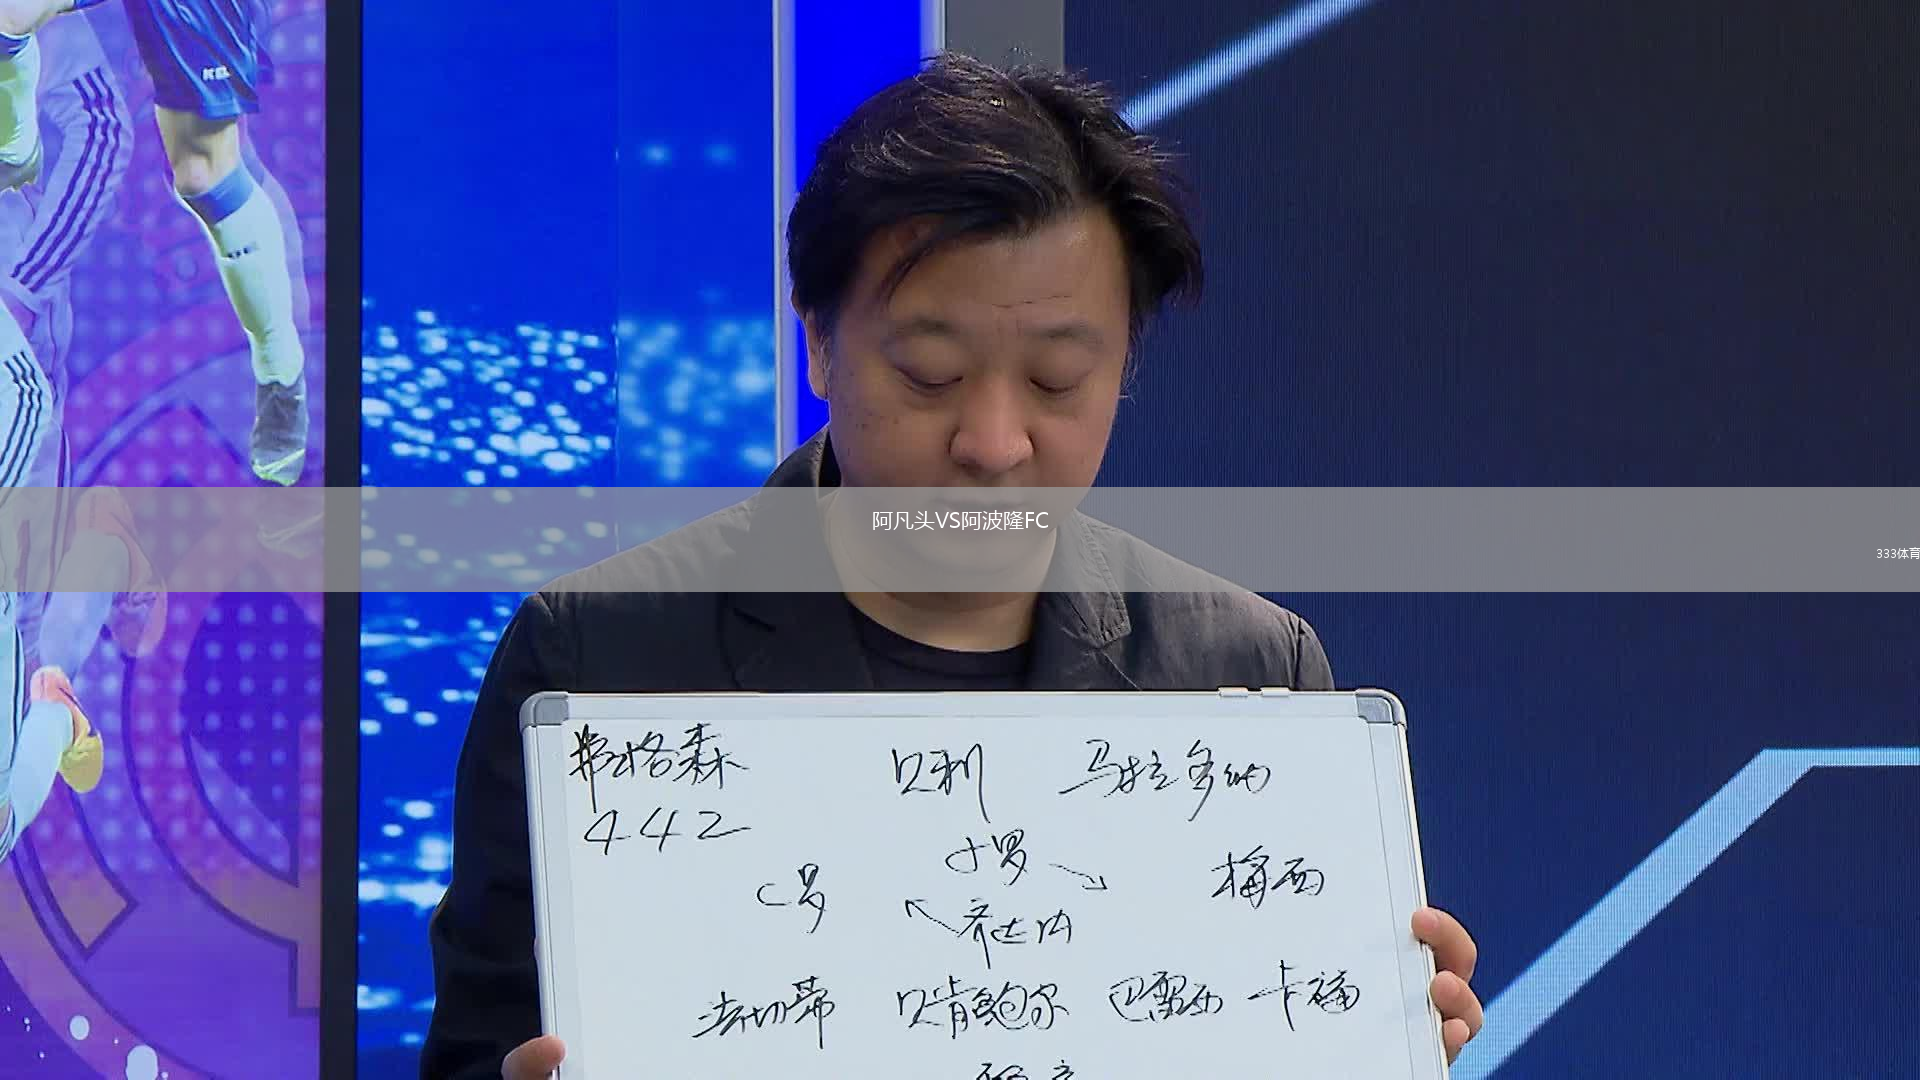 阿凡头VS阿波隆FC
333体育
弗格森 贝利 马拉多纳
442
小罗
C罗 梅西
齐达内
法切蒂 贝肯鲍尔 巴雷西 卡福